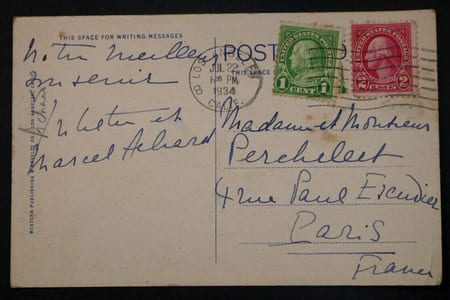 THIS SPACE FOR WRITING MESSAGES
Notre meilleur
souvenir
Juliette et
Marcel Achard
Achard
WESTERN PUBLISHING
POST
THIS SPACE
LOS
JUL 22
PM
1934
CALIF.
UNITED STATES POSTAGE
1 CENT 1
UNITED STATES POSTAGE
2 CENTS 2
Madame et Monsieur
4 rue Paul Escudier
Paris
France